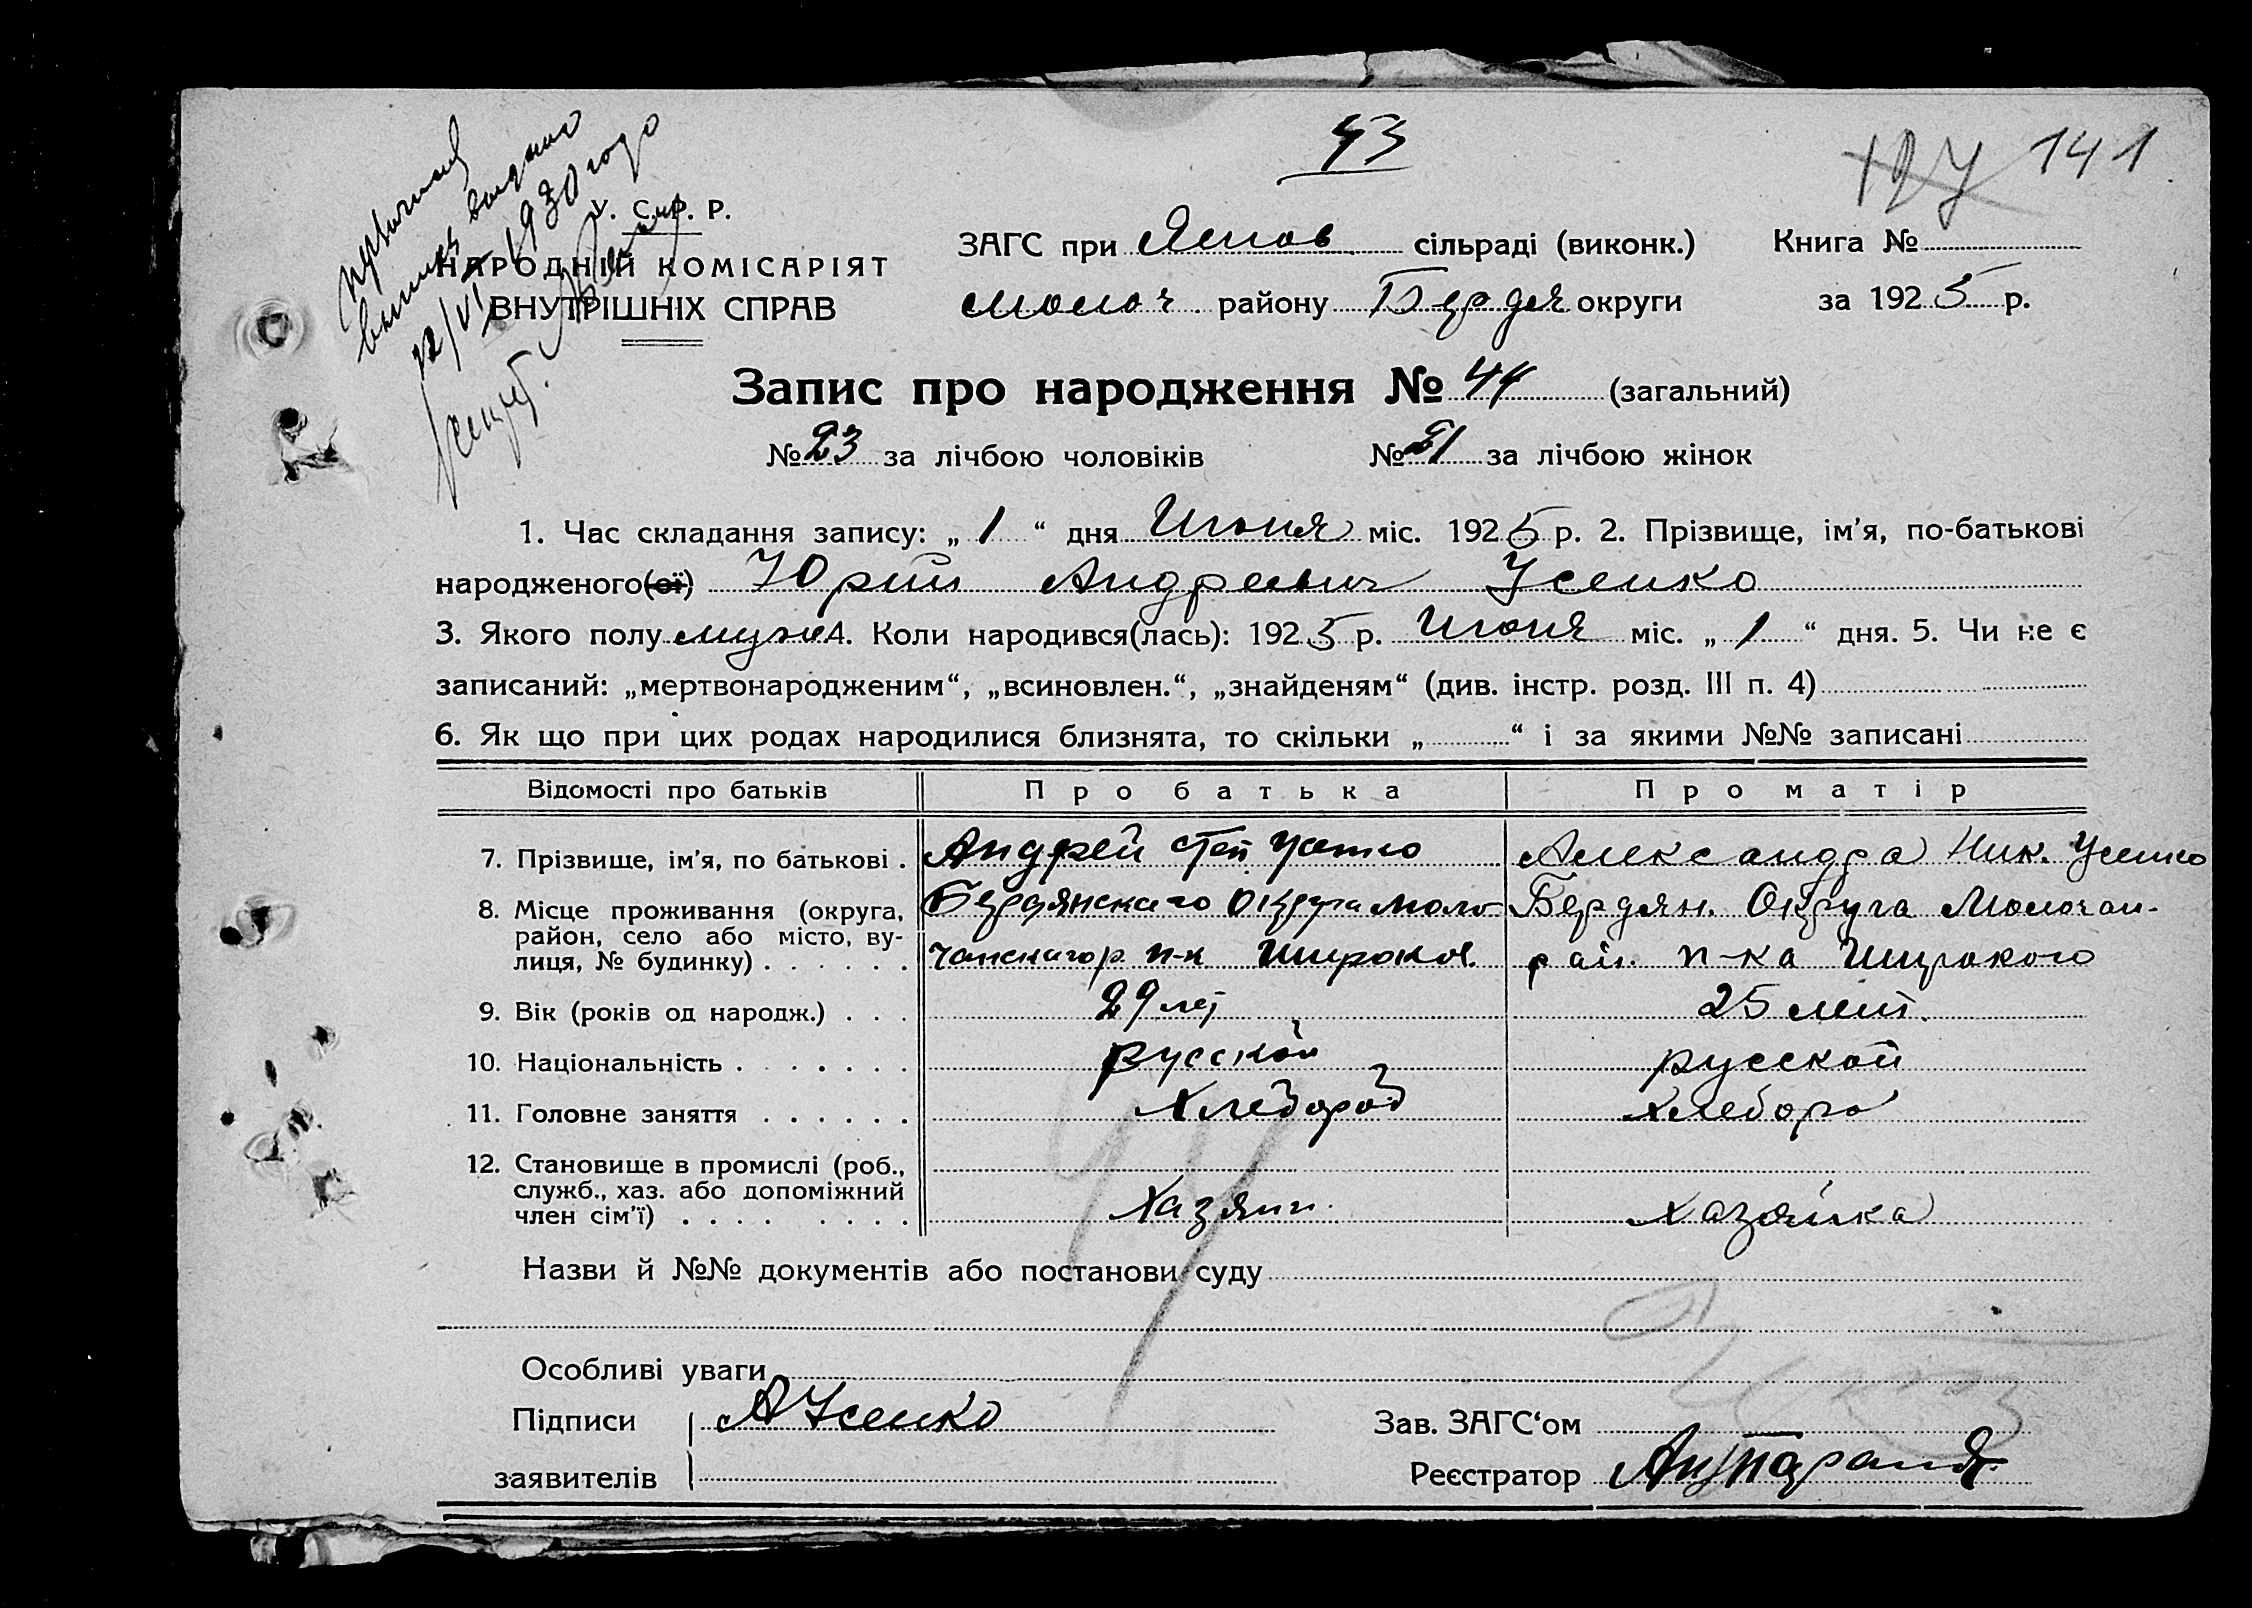 43
127 141
выписка выдана
22/VI 1930 года
У. С. Р. Р.
НАРОДНІЙ КОМІСАРІЯТ
ВНУТРІШНІХ СПРАВ
ЗАГС при Яснов сільраді (виконк.) Книга №
Молоч. району Бердян округи за 1925 р.
Запис про народження № 44 (загальний)
№ 23 за лічбою чоловіків № 21 за лічбою жінок
1. Час складання запису: „ 1 “ дня Июня міс. 1925 р. 2. Прізвище, ім'я, по-батькові
народженого(ої) Юрий Андреевич Усенко
3. Якого полу муж 4. Коли народився(лась): 1925 р. Июня міс. „ 1 “ дня. 5. Чи не є
записаний: „мертвонародженим“, „всиновлен.“, „знайденям“ (див. інстр. розд. III п. 4)
6. Як що при цих родах народилися близнята, то скільки „ “ і за якими №№ записані
Відомості про батьків Про батька Про матір
7. Прізвище, ім'я, по батькові . Андрей Степ Усенко Александра Ник. Усенко
8. Місце проживання (округа, Бердянскаго Округа Моло Бердян. Округа Молочан-
район, село або місто, ву-
лиця, № будинку) . . . . . . чанскаго р. п-к Широкое. рай. п-ка Широкого
9. Вік (років од народж.) . . . 29 лет 25 лет.
10. Національність . . . . . . . русской русской
11. Головне заняття . . . . . . Хлебороб хлебороб
12. Становище в промислі (роб.,
служб., хаз. або допоміжний
член сім'ї) . . . . . . . . Хазяин. хазяйка
Назви й №№ документів або постанови суду
44
Особливі уваги
Підписи АУсенко Зав. ЗАГС'ом
заявителів Реєстратор